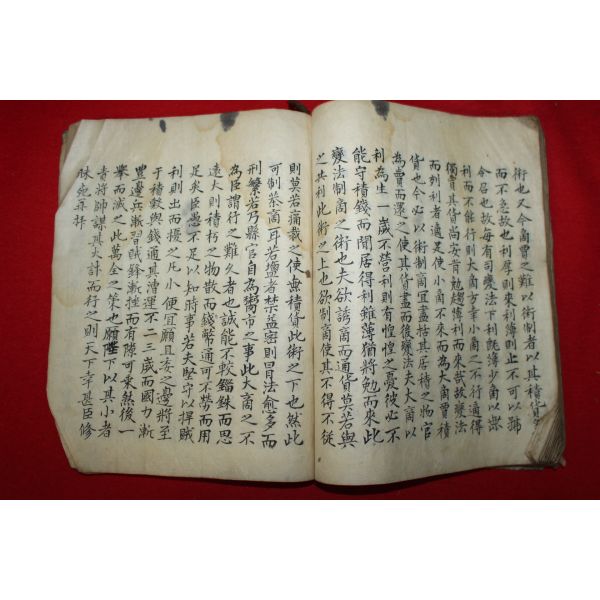 術也又今商賈之難以術制者以其積貨多
而不急故也利厚則來利薄則止不可以號
令召也故每有司變法下利既薄小商以無
利而不能行則大商方幸小商之不行適得
獨賣其貨尚安肯勉趨薄利而來哉故變法
而刻利者適足使小商不來而為大商賈積
貨也今必以術制商宜盡括其居待之物官
為賣而還之使其貨盡而後變法夫大商以
利為生一歲不營利則有惶惶之憂彼必不
能守積錢而閒居得利雖薄猶將勉而來此
變法制商之術也夫欲誘商而通貨莫若與
之共利此術之上也欲制商使其不得不從
則莫若痛裁之使無積貨此術之下也然此
可制茶商耳若鹽者禁益密則冒法愈多而
刑繁若乃縣官自為鬻市之事此大商之不
為臣謂行之難久者也誠能不較錙銖而思
遠大則積朽之物散而錢幣通可不勞而用
足矣臣愚不足以知時事若夫堅守以捍賊
利則出而擾之凡小便宜願且委之邊將至
于積穀與錢通其漕運不二三歲而國力漸
豐邊兵漸習賊鋒漸挫而有隙可乘然後一
舉而滅之此萬全之策也願陛下以其小者
責將帥謀其大計而行之則天下幸甚臣修
昧死再拜